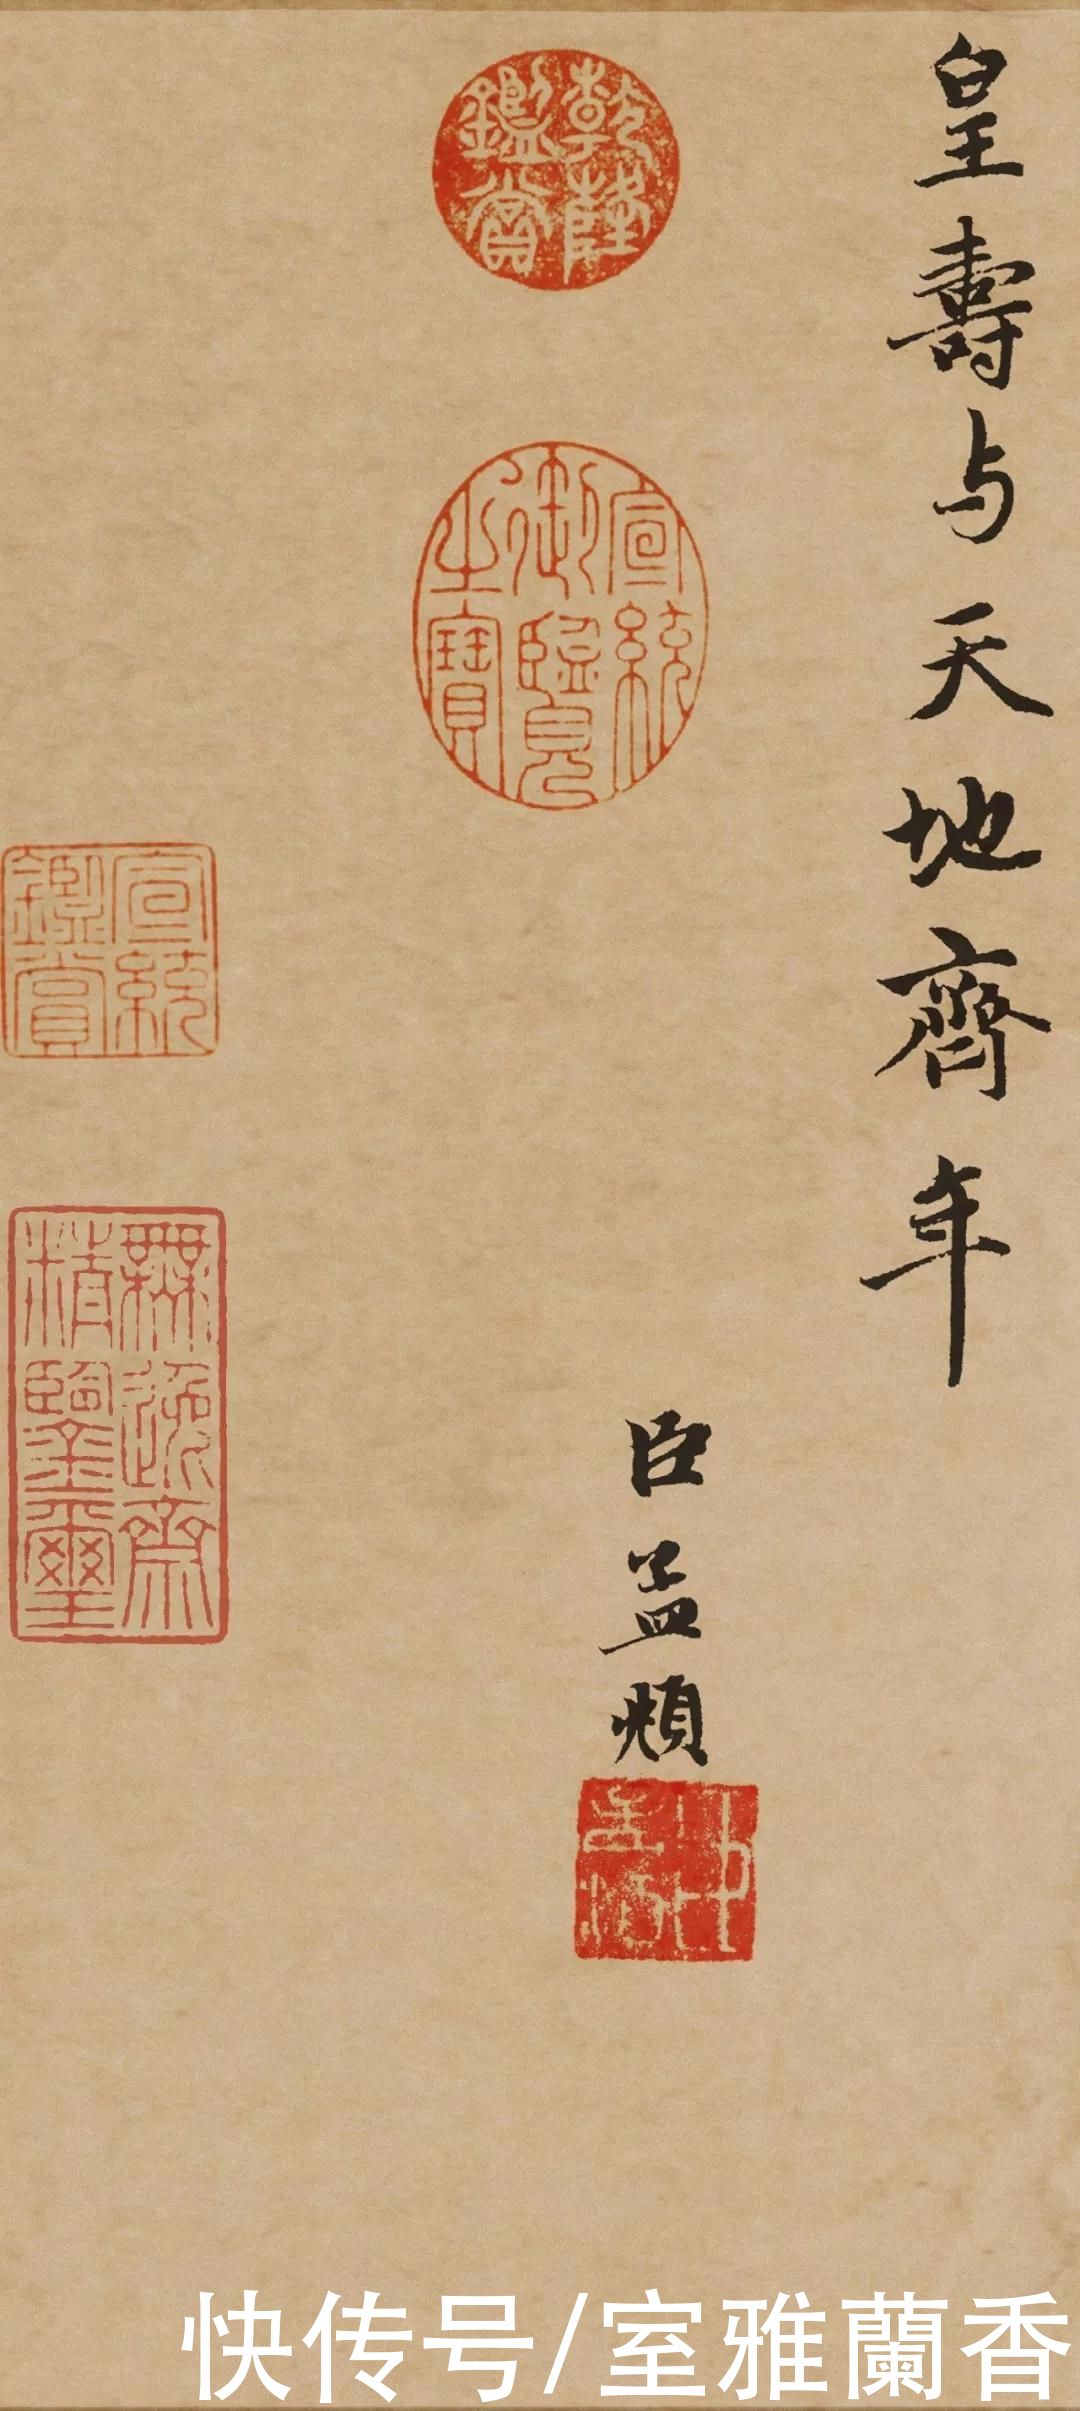 皇壽与天地齊年
臣孟頫
乾隆鑑賞
宣統御覽之寶
宣統鑑賞
無逸齋精鑒璽
快传号/室雅蘭香